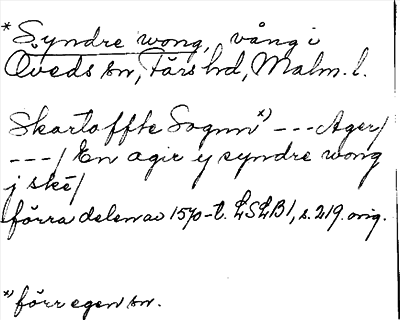 * Syndre wong, vång i
Öveds sn, Färs hd, Malm. l.
Skartoffte Sognn x) --- Ager/
---/ En agir y syndre wong
j ske/
förra delen av 1570-t. LSLB1, s. 219. orig.
x) förr egen sn.